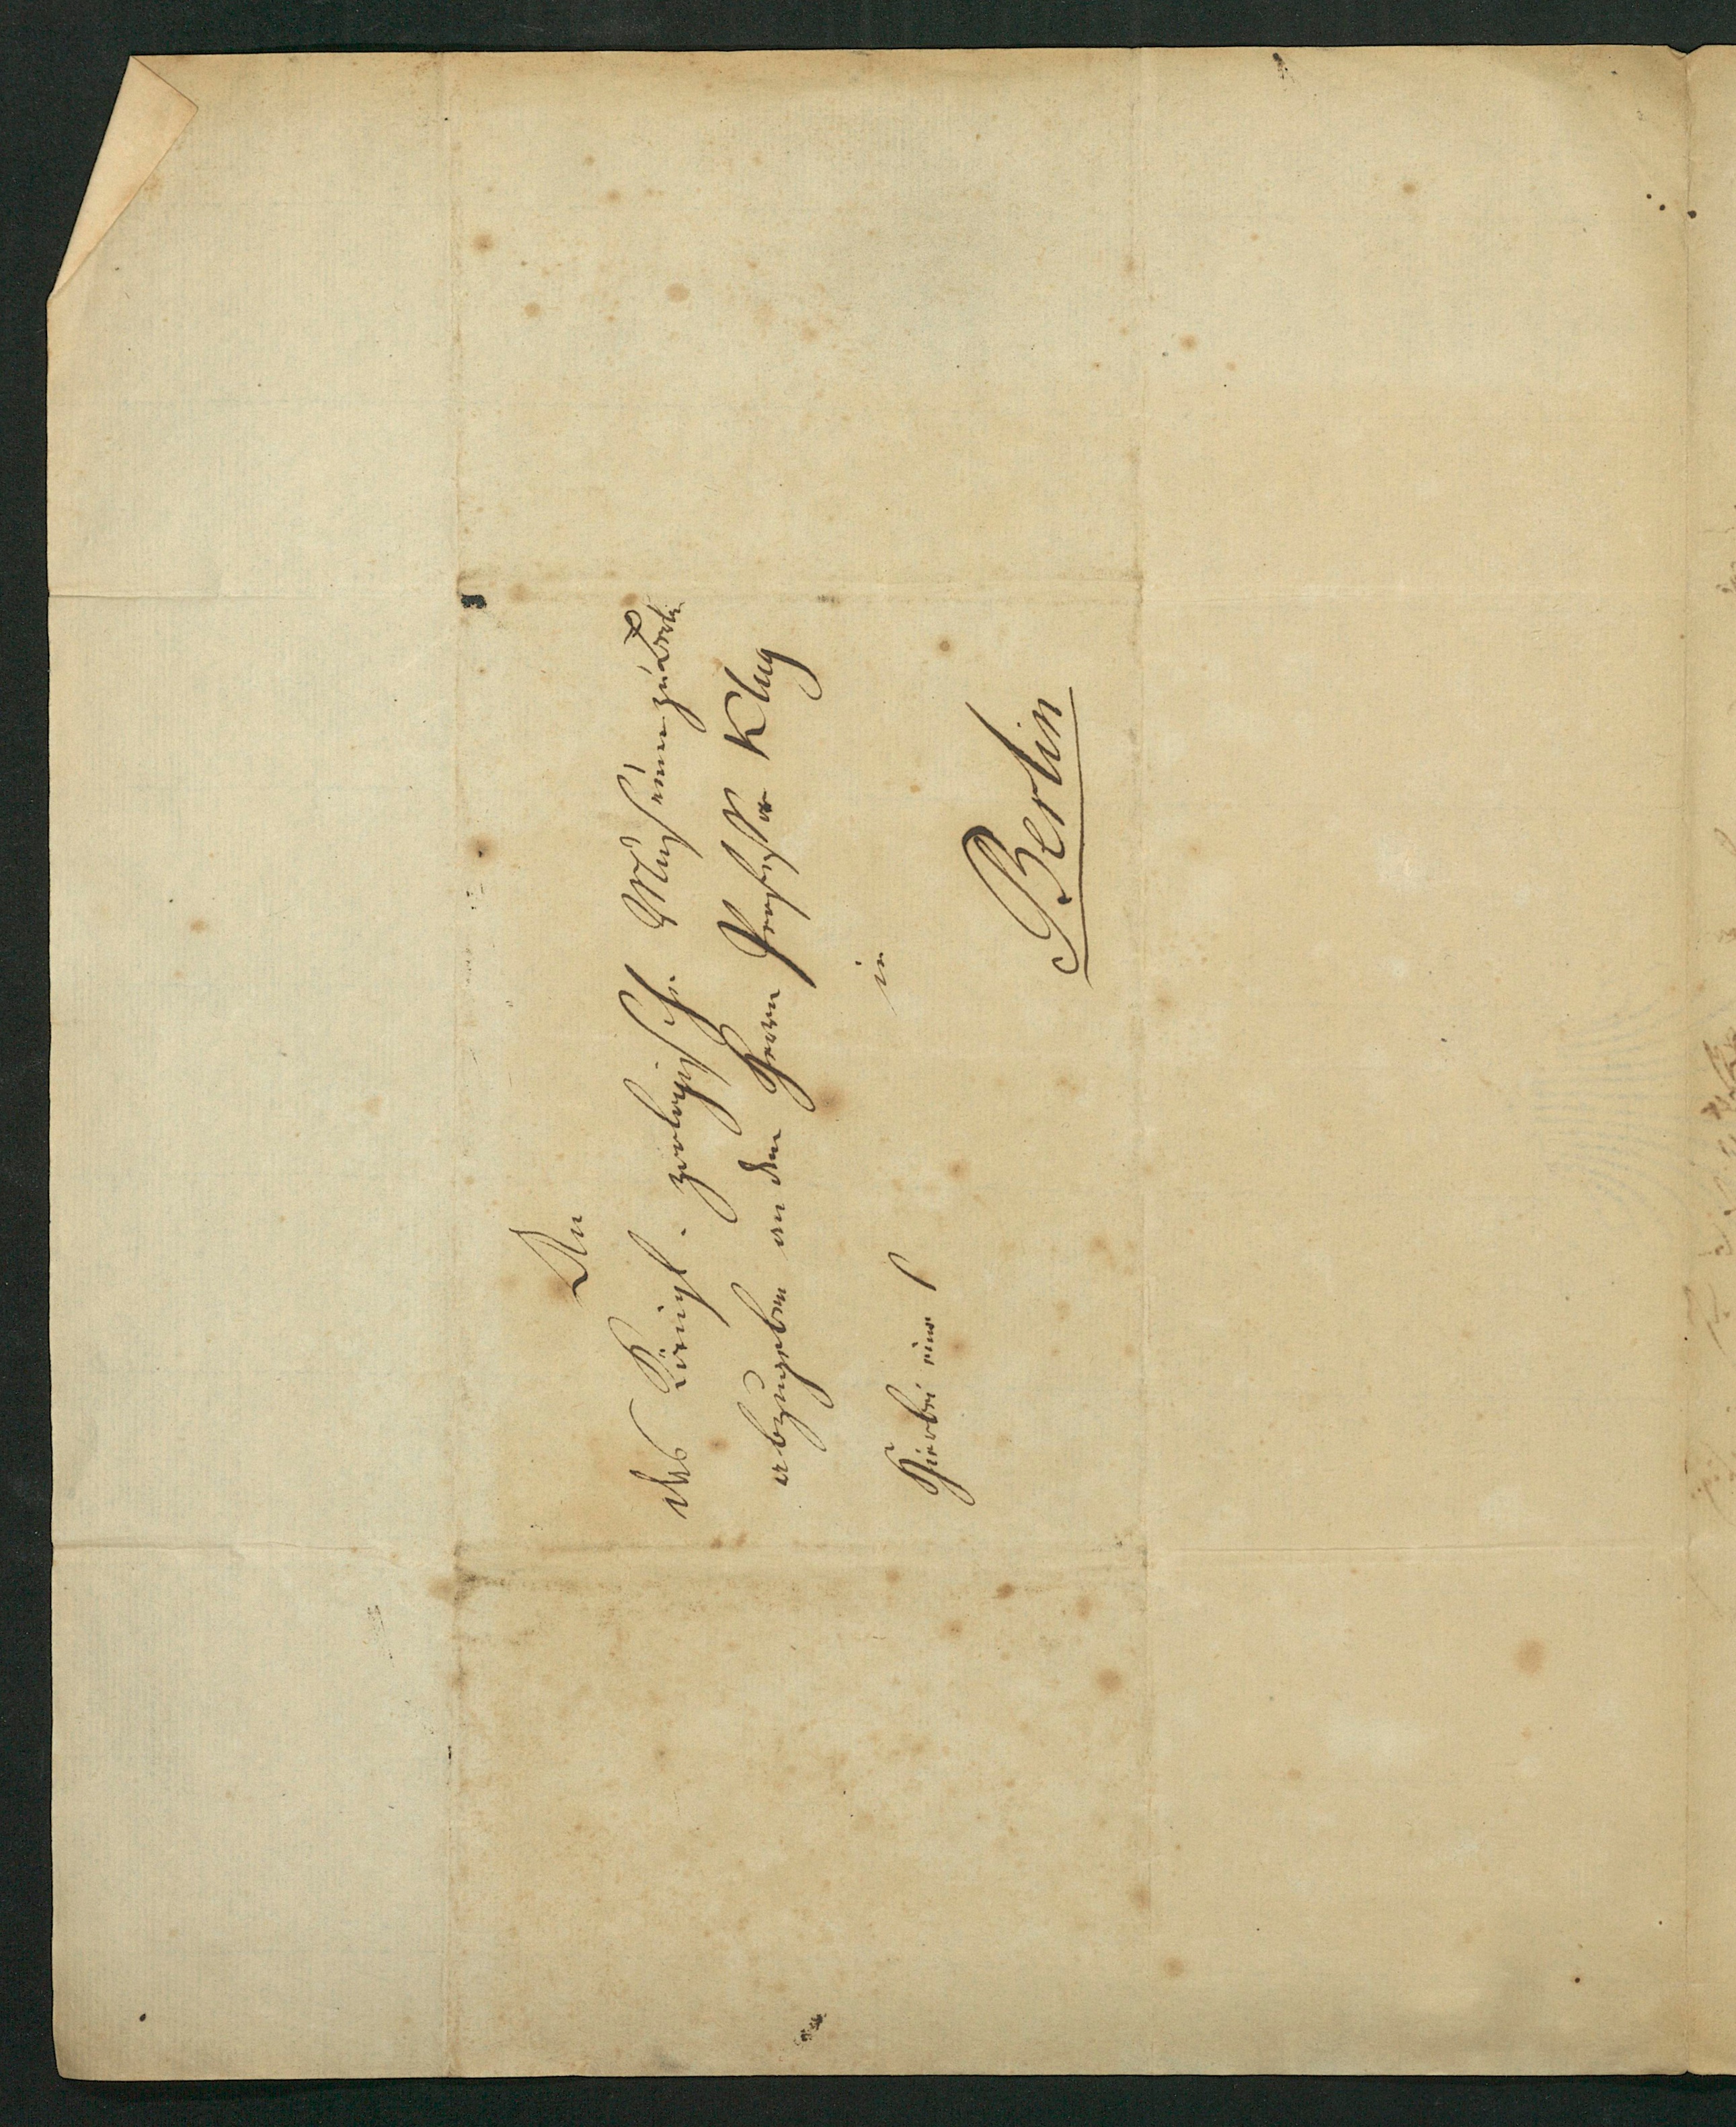 An
das Königl. zoologische Museum zu Berlin
abzugeben an den Herrn Professor Klug
in
Berlin
Hierbei eine